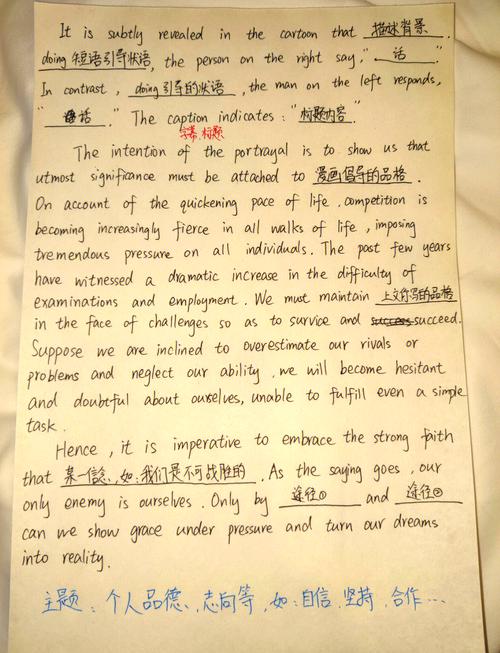 It is subtly revealed in the cartoon that 描述背景.
doing 短语引导状语, the person on the right say, " 话 "
In contrast, doing引导的状语, the man on the left responds,
" 话 ." The caption indicates: "标题内容"
字幕,标题
The intention of the portrayal is to show us that
utmost significance must be attached to 漫画倡导的品格.
On account of the quickening pace of life, competition is
becoming increasingly fierce in all walks of life, imposing
tremendous pressure on all individuals. The past few years
have witnessed a dramatic increase in the difficulty of
examinations and employment. We must maintain 上文你写的品格
in the face of challenges so as to survice and success succeed.
Suppose we are inclined to overestimate our rivals or
problems and neglect our ability, we will become hesitant
and doubtful about ourselves, unable to fulfill even a simple
task.
Hence, it is imperative to embrace the strong faith
that 某一信念,如:我们是不可战胜的. As the saying goes, our
only enemy is ourselves. Only by 途径① and 途径②
can we show grace under pressure and turn our dreams
into reality.
主题:个人品德、志向等,如:自信、坚持、合作...